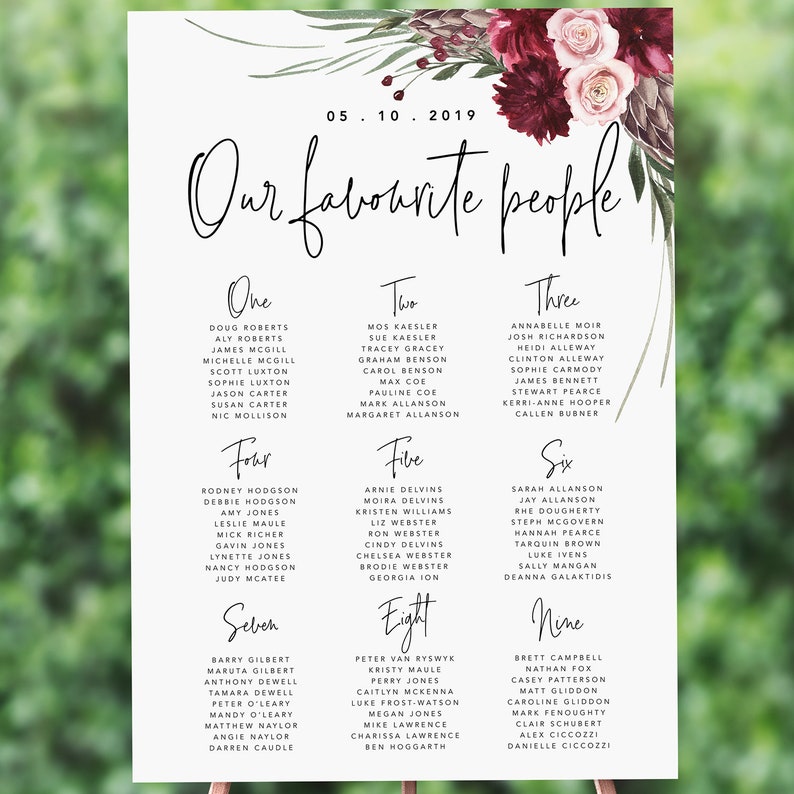 05 . 10 . 2019
Our favourite people
One
DOUG ROBERTS
ALY ROBERTS
JAMES MCGILL
MICHELLE MCGILL
SCOTT LUXTON
SOPHIE LUXTON
JASON CARTER
SUSAN CARTER
NIC MOLLISON
Two
MOS KAESLER
SUE KAESLER
TRACEY GRACEY
GRAHAM BENSON
CAROL BENSON
MAX COE
PAULINE COE
MARK ALLANSON
MARGARET ALLANSON
Three
ANNABELLE MOIR
JOSH RICHARDSON
HEIDI ALLEWAY
CLINTON ALLEWAY
SOPHIE CARMODY
JAMES BENNETT
STEWART PEARCE
KERRI-ANNE HOOPER
CALLEN BUBNER
Four
RODNEY HODGSON
DEBBIE HODGSON
AMY JONES
LESLIE MAULE
MICK RICHER
GAVIN JONES
LYNETTE JONES
NANCY HODGSON
JUDY MCATEE
Five
ARNIE DELVINS
MOIRA DELVINS
KRISTEN WILLIAMS
LIZ WEBSTER
RON WEBSTER
CINDY DELVINS
CHELSEA WEBSTER
BRODIE WEBSTER
GEORGIA ION
Six
SARAH ALLANSON
JAY ALLANSON
RHE DOUGHERTY
STEPH MCGOVERN
HANNAH PEARCE
TARQUIN BROWN
LUKE IVENS
SALLY MANGAN
DEANNA GALAKTIDIS
Seven
BARRY GILBERT
MARUTA GILBERT
ANTHONY DEWELL
TAMARA DEWELL
PETER O'LEARY
MANDY O'LEARY
MATTHEW NAYLOR
ANGIE NAYLOR
DARREN CAUDLE
Eight
PETER VAN RYSWYK
KRISTY MAULE
PERRY JONES
CAITLYN MCKENNA
LUKE FROST-WATSON
MEGAN JONES
MIKE LAWRENCE
CHARISSA LAWRENCE
BEN HOGGARTH
Nine
BRETT CAMPBELL
NATHAN FOX
CASEY PATTERSON
MATT GLIDDON
CAROLINE GLIDDON
MARK FENOUGHTY
CLAIR SCHUBERT
ALEX CICCOZZI
DANIELLE CICCOZZI